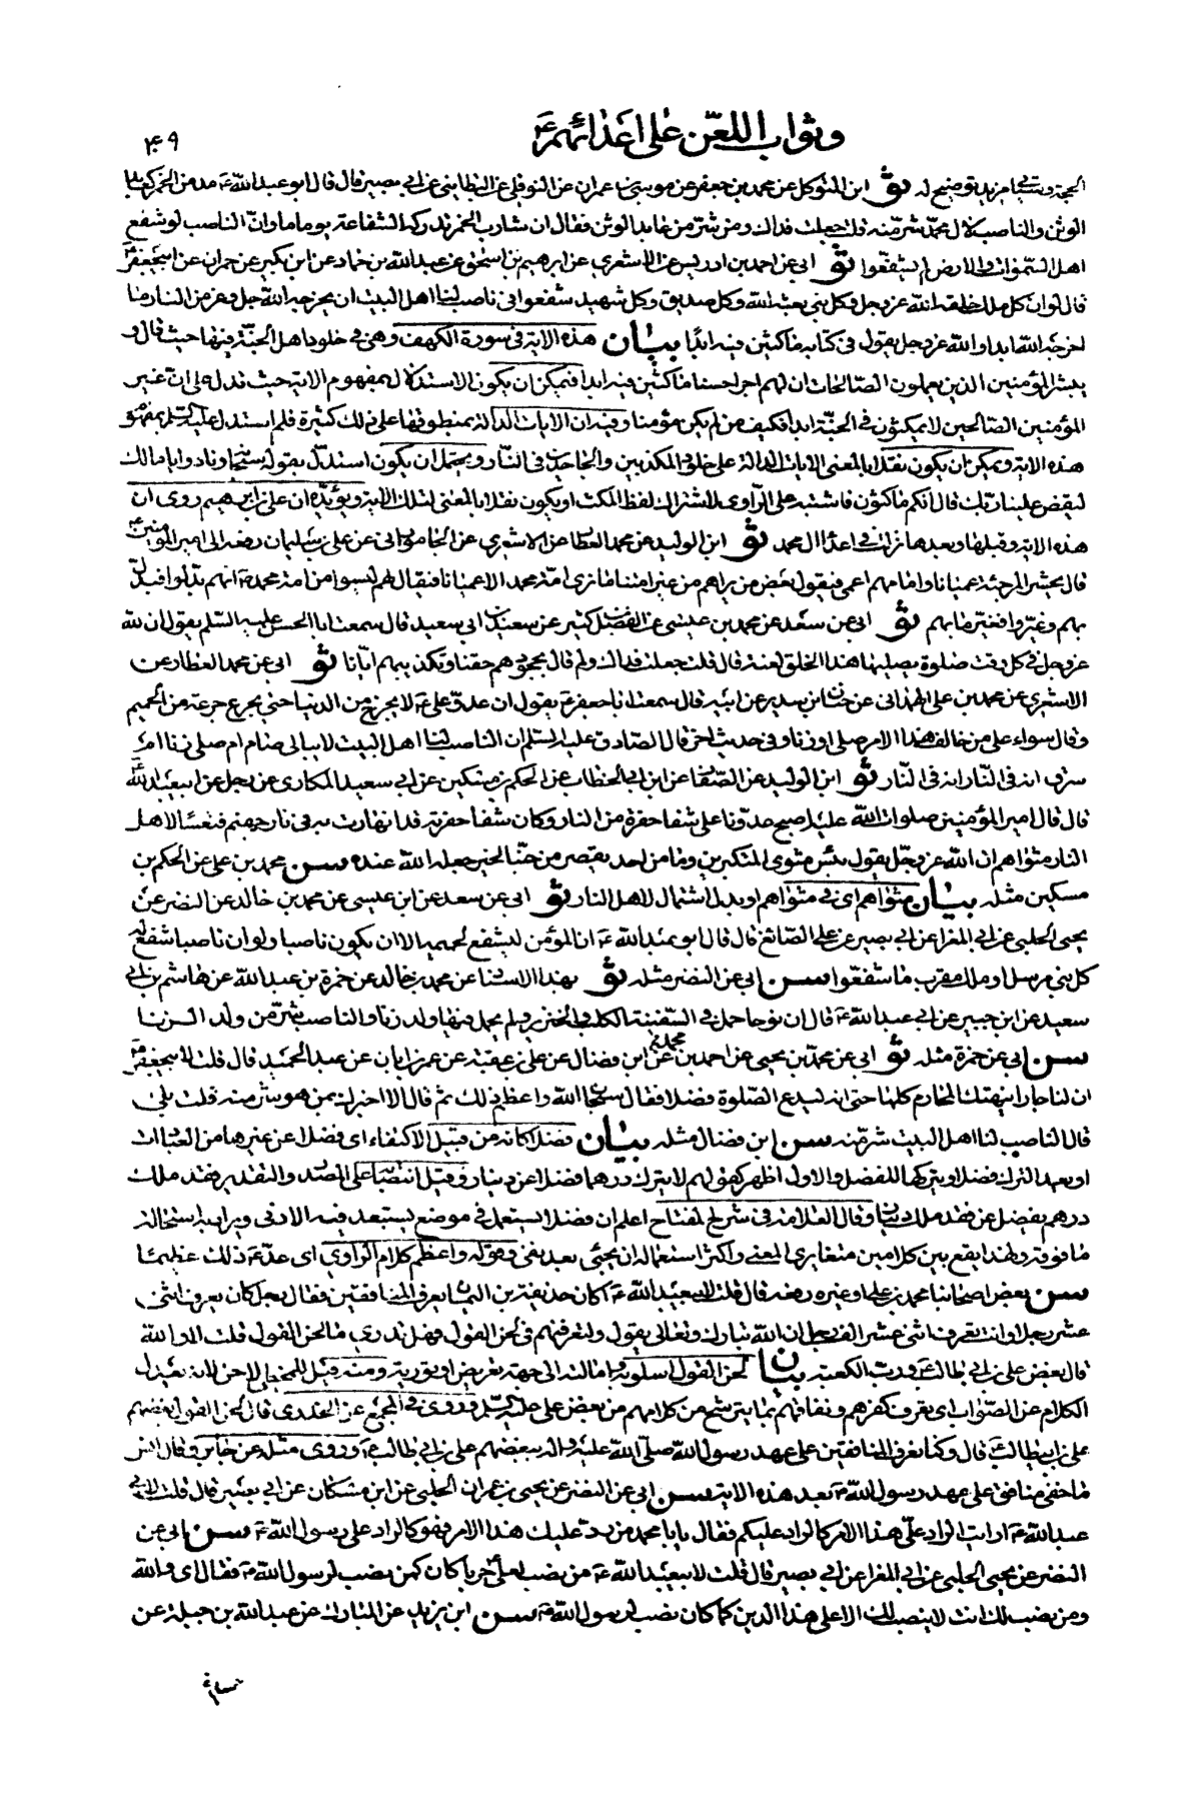 وثواب اللعن على اعدائهم ع
۴۰۹
الحجة وسيأتى مزيد توضيح له ثو ابن المتوكل عن محمد بن جعفر عن موسى بن عمران عن النوفلي عن البطاينى عن ابى بصير قال قال ابو عبد الله ع مدمن الخمر كعابد
الوثن والناصب لال محمد شر منه قلت جعلت فداك ومن شر من عابد الوثن فقال ان شارب الخمر تدركه الشفاعة يوما ما وان الناصب لو شفع
اهل السموات والارض لم يشفعوا ثو ابى عن احمد بن ادريس عن الاشعري عن ابرهيم بن اسحق عن عبد الله بن حماد عن ابن بكير عن حمران عن ابيجعفر ع
قال لو ان كل ملك خلقه الله عز وجل وكل نبى بعثه الله وكل صديق وكل شهيد شفعوا فى ناصب لنا اهل البيت ان يخرجه الله جل وعز من النار ما
اخرجه الله ابدا والله عز وجل يقول فى كتابه ماكثين فيه ابدا بيان هذه الاية فى سورة الكهف وهى فى خلود اهل الجنة فيها حيث قال و
يبشر المؤمنين الذين يعملون الصالحات ان لهم اجرا حسنا ماكثين فيه ابدا فيمكن ان يكون الاستدلال بمفهوم الاية حيث تدل على ان غير
المؤمنين الصالحين لا يمكثون فى الجنة ابدا فكيف من لم يكن مؤمنا وفيه ان الايات الدالة بمنطوقها على ذلك كثيرة فلم استدل عليه السلم بمفهوم
هذه الاية ويمكن ان يكون نقلا بالمعنى الايات الدالة على خلود المكذبين والجاحدين فى النار ويحتمل ان يكون استدل بقوله سبحانه ونادوا يا مالك
ليقض علينا ربك قال انكم ماكثون فاشتبه على الراوى لاشتراك لفظ المكث او يكون نقلا بالمعنى لتلك الاية ويؤيده ان على بن ابرهيم روى ان
هذه الاية وقبلها وبعدها نزلت فى اعداء ال محمد ثو ابن الوليد عن محمد العطار عن الاشعري عن الجامورانى عن على بن سليمان رفعه الى امير المؤمنين ع
قال يحشر المرجئة عميانا وامامهم اعمى فيقول بعض من يراهم من غير امتنا ما نرى امة محمد الا عميانا فيقال لهم ليسوا من امة محمد ص انهم بدلوا فبدل
بهم وغيروا فغير ما بهم ثو ابى عن سعد عن محمد بن عيسى عن الفضل بن كثير عن سعيد بن ابى سعيد قال سمعت ابا الحسن عليه السلم يقول ان لله
عز وجل فى كل وقت صلوة يصليها هذا الخلق لعنة قال قلت جعلت فداك ولم قال بجحودهم حقنا وتكذيبهم ايانا ثو ابى عن محمد العطار عن
الاشعري عن محمد بن على الهمدانى عن حنان بن سدير عن ابيه قال سمعت ابا جعفر ع يقول ان عدو على ع لا يخرج من الدنيا حتى يجرع جرعة من الحميم
وقال سواء على من خالف هذا الامر صلى او زنا وفى حديث اخر قال الصادق عليه السلم ان الناصب لنا اهل البيت لا يبالى صام ام صلى زنا ام
سرق انه فى النار انه فى النار ثو ابن الوليد عن الصفار عن ابن ابى الخطاب عن الحكم بن مسكين عن ابى سعيد المكارى عن رجل عن ابيعبد الله ع
قال قال امير المؤمنين صلوات الله عليه اصبح عدونا على شفا حفرة من النار وكان شفا حفرته قد انهارت به فى نار جهنم فتعسا لاهل
النار مثواهم ان الله عز وجل يقول بئس مثوى المتكبرين وما من احد يقصر من حبنا لخير جعله الله عنده سن محمد بن على عن الحكم بن
مسكين مثله بيان مثواهم اى فى مثواهم او بدل اشتمال لاهل النار ثو ابى عن سعد عن ابن عيسى عن محمد بن خالد عن النضر عن
يحيى الحلبى عن ابى المغرا عن ابى بصير عن على الصائغ قال قال ابو عبد الله ع ان المؤمن ليشفع لحميمه الا ان يكون ناصبا ولو ان ناصبا شفع له
كل نبى مرسل او ملك مقرب ما شفعوا سن ابى عن النضر مثله ثو بهذا الاسناد عن محمد بن خالد عن حمزة بن عبد الله عن هاشم بن ابى
سعيد عن ابى بصير عن ابى عبد الله ع قال ان نوحا حمل فى السفينة الكلب والخنزير ولم يحمل فيها ولد زنا والناصب شر من ولد الزنا
سن ابى عن حمزة مثله ثو ابى عن محمد بن يحيى عن احمد بن محمد عن ابن فضال عن على بن عقبة عن عمر بن ابان عن عبد الحميد قال قلت لابيجعفر ع
ان لنا جارا ينتهك المحارم كلها حتى انه ليدع الصلوة فضلا فقال سبحان الله واعظم ذلك ثم قال الا اخبرك بمن هو شر منه قلت بلى
قال الناصب لنا اهل البيت شر منه سن ابن فضال مثله بيان فضلا كانه من قبيل الاكتفاء اى فضلا عن غيرها من العبادات
او بعد الترك فضلا او يتركها للفضل والاول اظهر كقولهم لا يترك درهما فضلا عن دينار وقيل انتصابه على المصدر والتقدير فقد ملك
درهم يفضل عن فقد ملك دينار وقال العلامة فى شرح المفتاح اعلم ان فضلا يستعمل فى موضع يستبعد فيه الادنى ويراد به استحالة
ما فوقه ولهذا يقع بين كلامين متغايرى المعنى واكثر استعماله ان يجيئ بعد نفى وقوله واعظم كلام الراوي اى عده ع ذلك عظيما
سن بعض اصحابنا محمد بن على او غيره رفعه قال قلت لابيعبد الله ع اكان حذيفة بن اليمان يعرف المنافقين فقال رجل كان يعرف اثنى
عشر رجلا وانت تعرف اثنى عشر الف رجل ان الله تبارك وتعالى يقول ولتعرفنهم فى لحن القول فهل تدري ما لحن القول قلت لا والله
قال بغض على بن ابى طالب ع ورب الكعبة بيان لحن القول اسلوبه او امالته الى جهة تعريض او تورية ومنه قيل للمخطى لاحن لانه يعدل
الكلام عن الصواب اى يعرف كفرهم ونفاقهم بما يترشح من كلامهم من بغض على عليه السلم وروى فى المجمع عن الخدرى قال لحن القول بغضهم
على بن ابيطالب ع قال وكنا نعرف المنافقين على عهد رسول الله صلى الله عليه واله ببغضهم على بن ابى طالب ع وروى مثله عن جابر وقال انس
ما خفى منافق على عهد رسول الله ص بعد هذه الاية سن ابى عن النضر عن يحيى بن عمران الحلبى عن ابن مسكان عن ابى بصير قال قلت لابى
عبد الله ع ارايت الراد على هذا الامر كالراد عليكم فقال يا با محمد من رد عليك هذا الامر فهو كالراد على رسول الله ص سن ابى عن
النضر عن يحيى الحلبى عن ابى المغرا عن ابى بصير قال قلت لابيعبد الله ع من نصب لعلى حربا كان كمن نصب لرسول الله ص فقال اى والله
ومن نصب لك انت لا ينصب لك الا على هذا الدين كما كان نصب لرسول الله ص سن ابن يزيد عن المبارك عن عبد الله بن جبلة عن